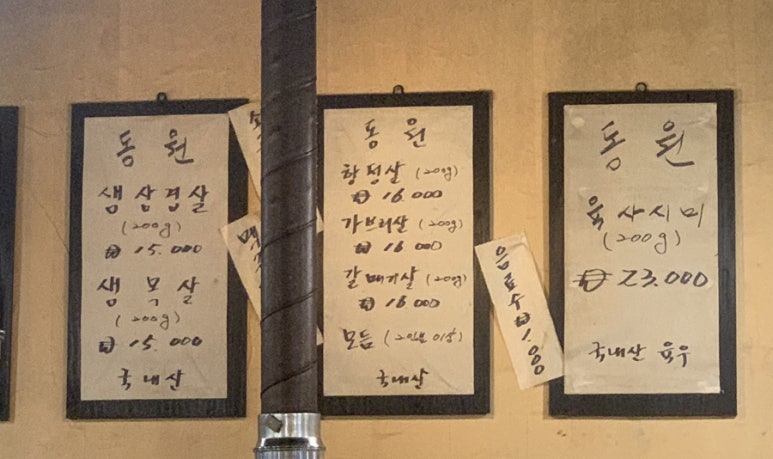 동원
생삼겹살
(200g)
₩ 15.000
생목살
(200g)
₩ 15.000
국내산
동원
항정살 (200g)
₩ 16.000
가브리살 (200g)
₩ 16 000
갈매기살 (200g)
₩ 16 000
모듬 (2인분 이상)
국내산
음료수
동원
육사시미
(200g)
₩ 23.000
국내산 육우